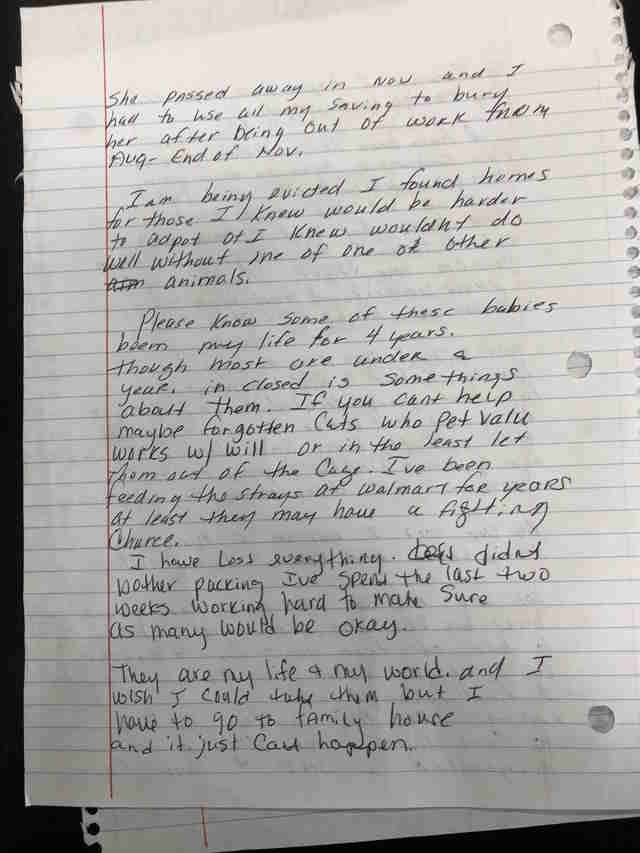 She passed away in Nov and I
had to use all my saving to bury
her after being out of work from
Aug- End of Nov.
I am being evicted I found homes
for those I knew would be harder
to adpot or I knew wouldnt do
well without one of one or other
animals.
Please know some of these babies
been my life for 4 years.
though most are under a
year. in closed is some things
about them. If you cant help
maybe forgotten Cats who Pet Valu
works w/ will or in the least let
them out of the Cage. I've been
feeding the strays at walmart for years
at least they may have a fighting
Chance.
I have loss everything. didnt
bother packing Ive spend the last two
weeks working hard to make sure
as many would be okay.
They are my life & my world. and I
wish I could take them but I
have to go to family house
and it just cant happen.